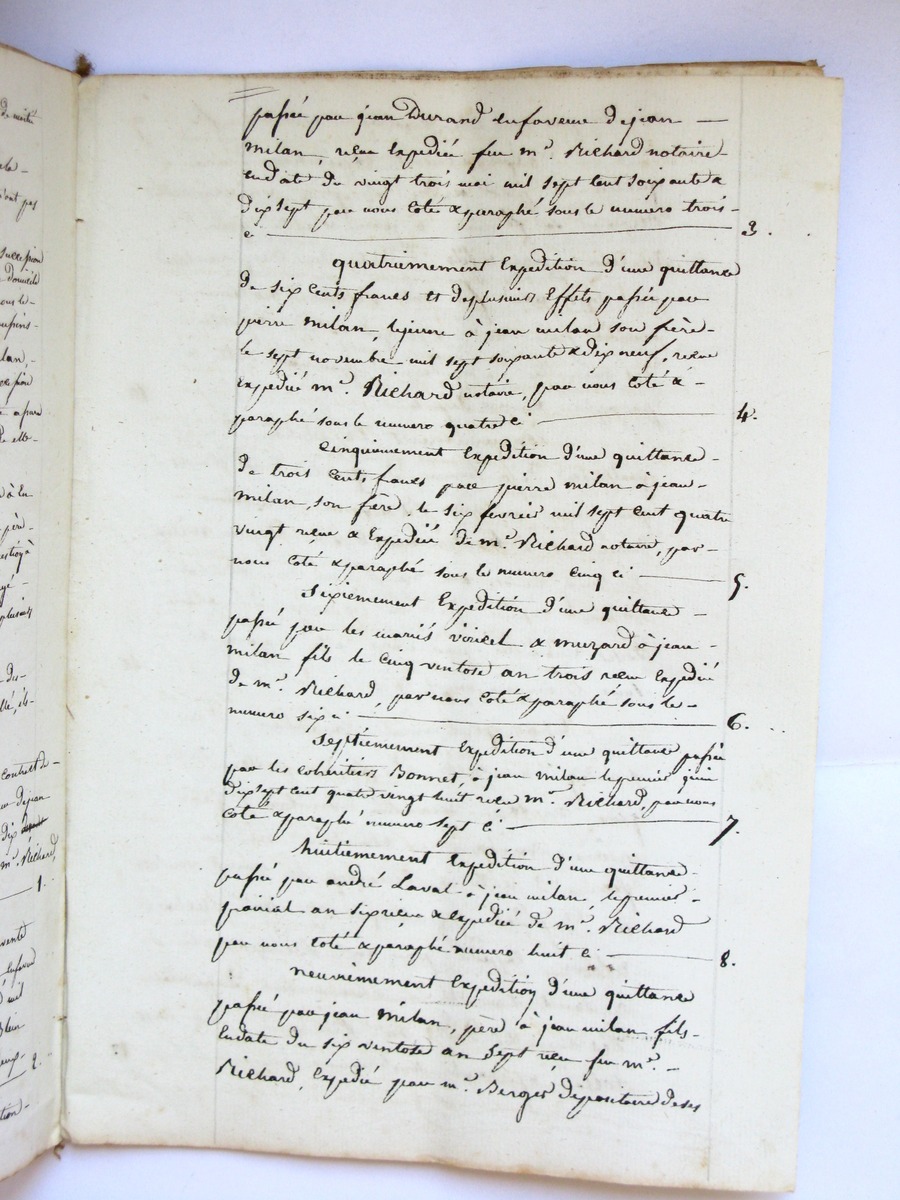 passée par jean Durand en faveur de jean —
milan, reçue Expediée feu mr. Richard notaire
en date du vingt trois mai mil sept cent soixante &
dix sept par nous coté & paraphé sous le numéro trois -
ci — 3.
quatriemement Expedition d'une quittance
de six cents francs et de plusieurs Effets passée par
pierre milan, le jeune à jean milan son frère -
le sept novembre mil sept soixante & dix neuf, reçue
Expedié mr. Richard notaire, par nous coté & -
paraphé sous le numero quatre ci — 4.
Cinquiemement Expedition d'une quittance -
de trois cents francs par pierre milan à jean -
milan, son frère, le six fevrier mil sept cent quatre
vingt reçue & Expedié de mr. Richard notaire, par -
nous coté & paraphé sous le numero cinq ci — 5.
Sixiemement Expedition d'une quittance -
passée par les mariés viricel & muzard à jean -
milan fils le cinq ventose an trois reçue Expedié
de mr. Richard, par nous coté & paraphé sous le -
numero six ci — 6.
Septiemement Expedition d'une quittance passée
par les cohéritiers Bonnet, à jean milan le premier juin
dix sept cent quatre vingt huit reçu mr. Richard, par nous
coté & paraphé numero sept ci — 7.
huitiemement Expedition d'une quittance -
passée par andré Laval à jean milan, le premier -
prairial an six reçue & expediée de mr. Richard
par nous coté & paraphé numero huit ci — 8.
neuviemement Expedition d'une quittance
passée par jean milan, père à jean milan fils -
en date du six ventose an sept reçu feu mr. -
Richard, Expedié par mr. Berger dépositaire de ses